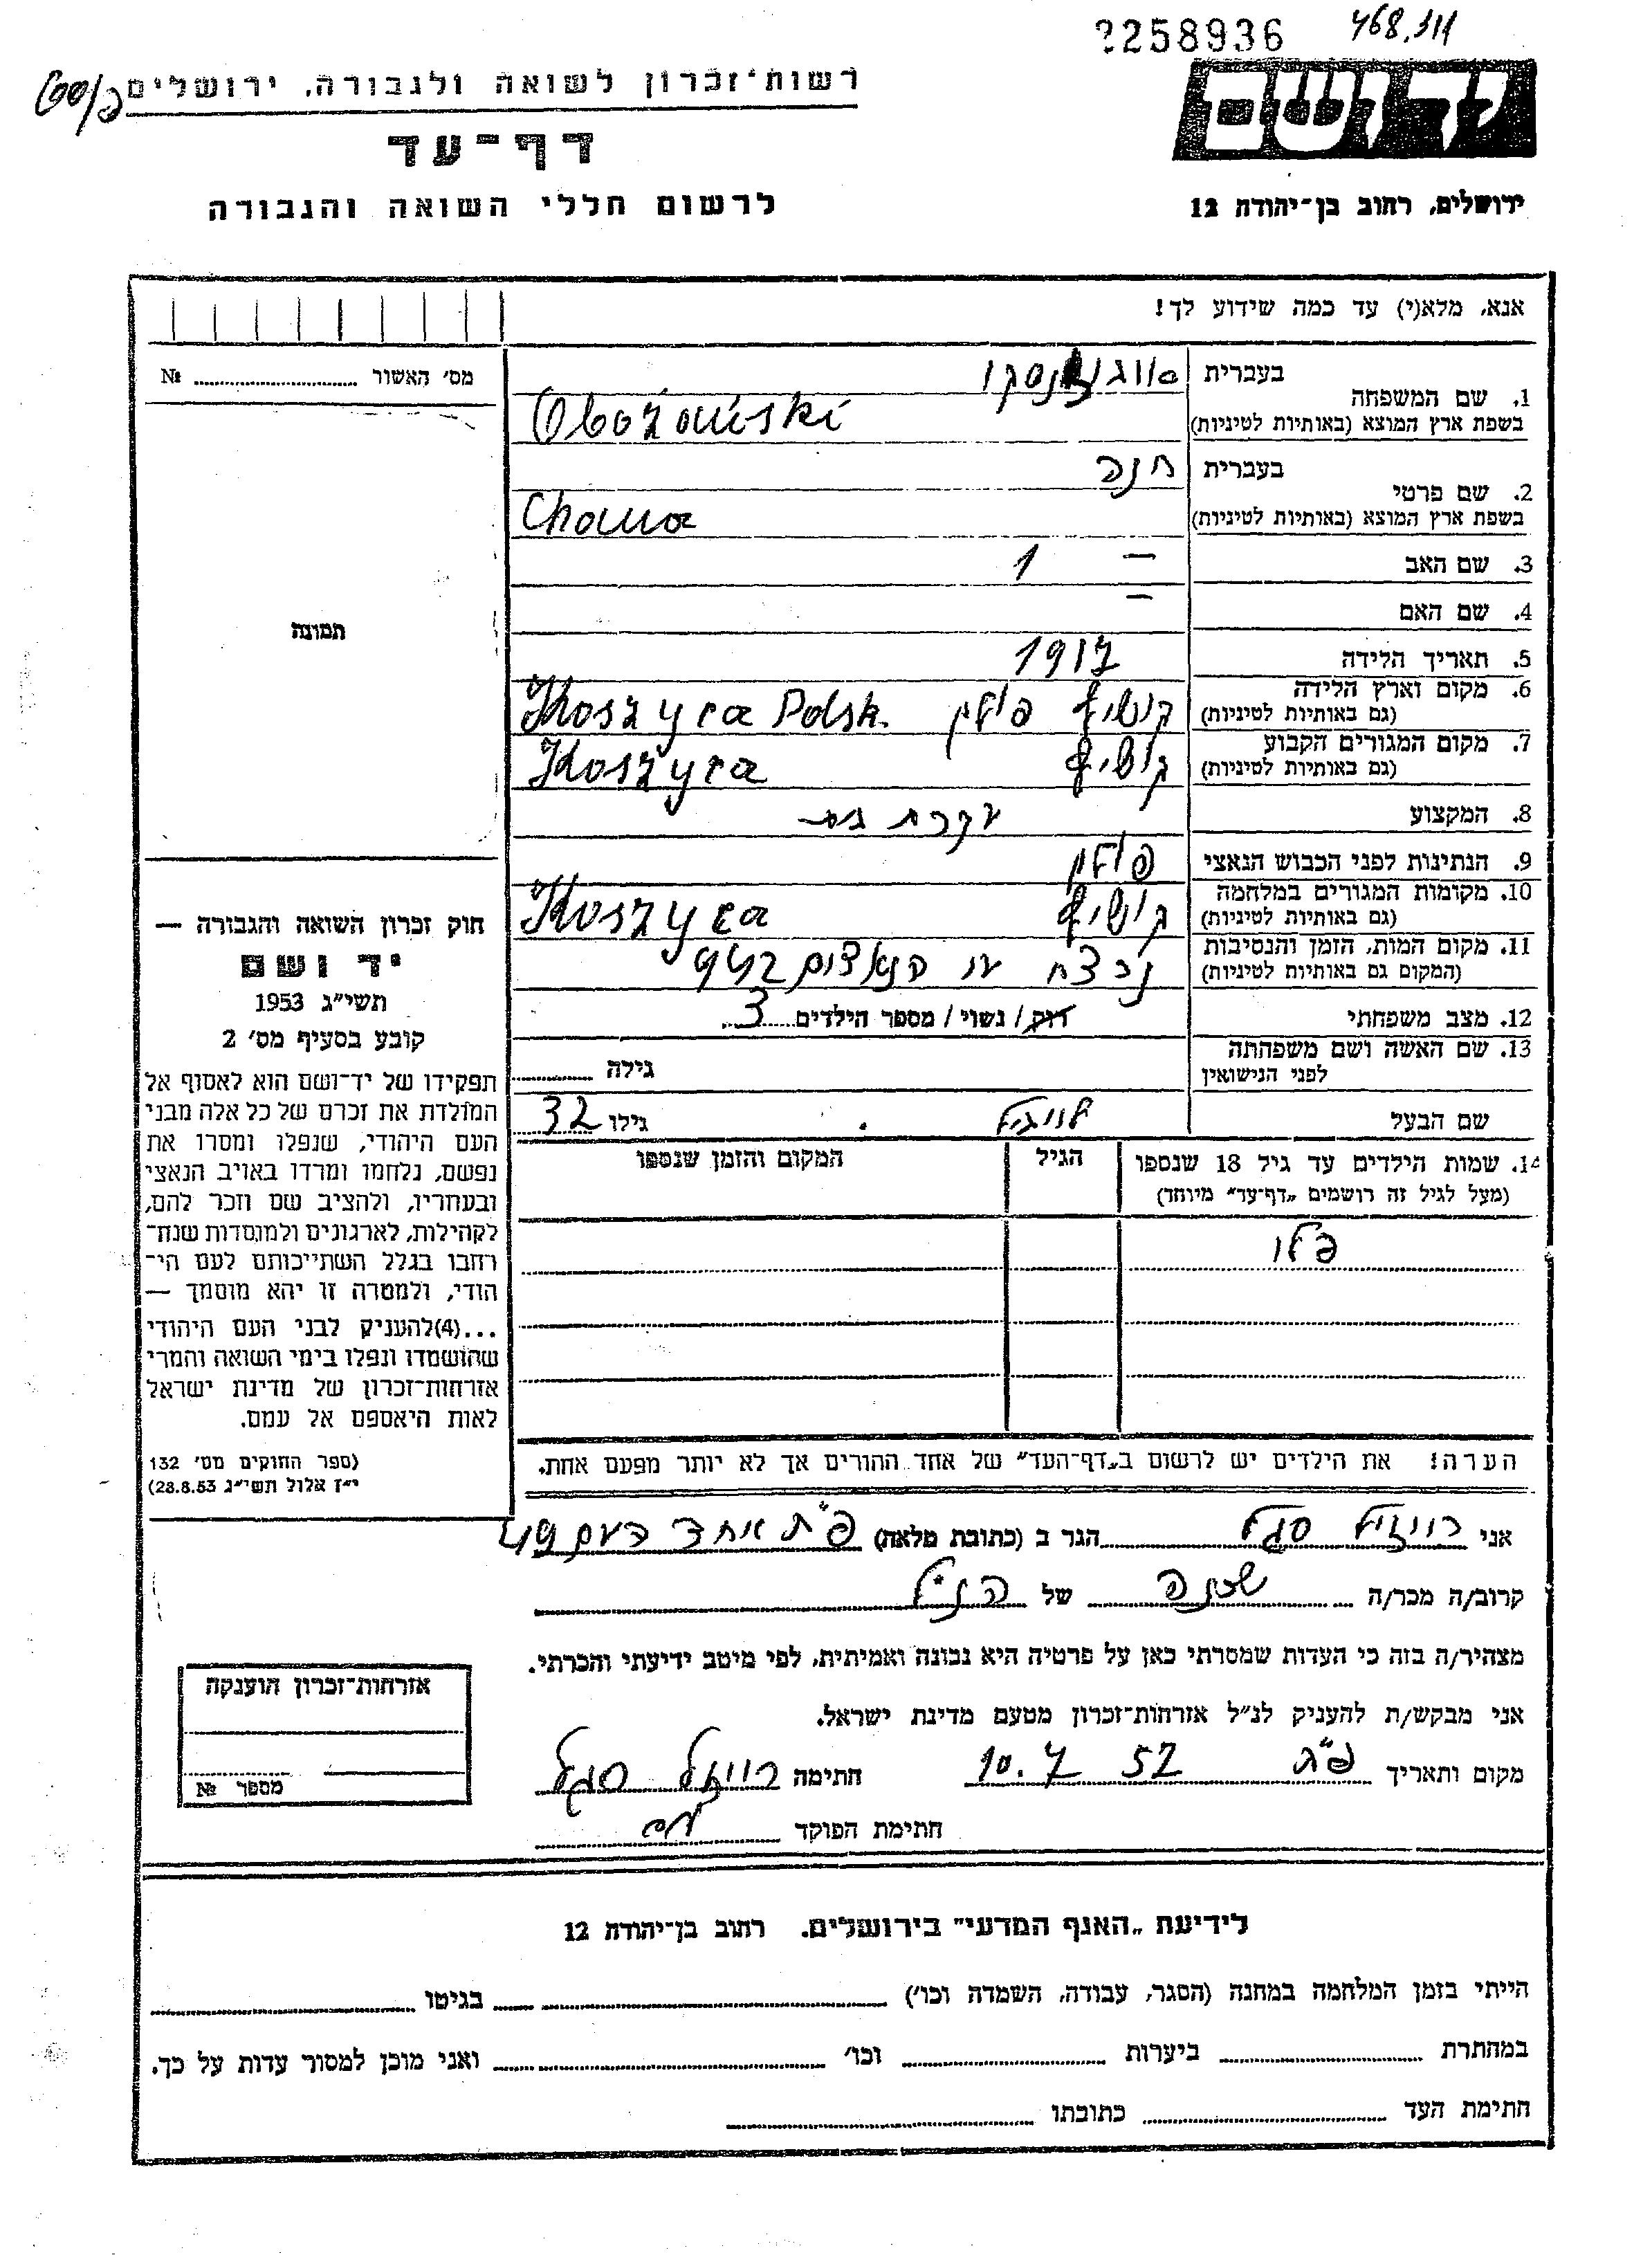 2258936
468.311
יד ושם
רשות־זכרון לשואה ולגבורה, ירושלים
דף־עד
לרשום חללי השואה והגבורה
ירושלים, רחוב בן־יהודה 12
אנא, מלא(י) עד כמה שידוע לך!
מס׳ האשור № ........
1. שם המשפחה
בעברית
בשפת ארץ המוצא (באותיות לטיניות)
Obożański
2. שם פרטי
בעברית חנה
בשפת ארץ המוצא (באותיות לטיניות) Chana
3. שם האב —
4. שם האם —
5. תאריך הלידה 1917
6. מקום וארץ הלידה
(גם באותיות לטיניות) פולין Koszyca Polsk.
7. מקום המגורים הקבוע
(גם באותיות לטיניות) Koszyca
8. המקצוע עקרת בית
9. הנתינות לפני הכבוש הנאצי פולין
10. מקומות המגורים במלחמה
(גם באותיות לטיניות) Koszyca
11. מקום המות, הזמן והנסיבות
(המקום גם באותיות לטיניות) נרצח
12. מצב משפחתי רוק / נשוי / מספר הילדים 3
13. שם האשה ושם משפחתה
לפני הנישואין גילה ........
שם הבעל גילו 32
14. שמות הילדים עד גיל 18 שנספו
(מעל לגיל זה רושמים „דף־עד״ מיוחד)
הגיל
המקום והזמן שנספו
הערה! את הילדים יש לרשום ב„דף־העד״ של אחד ההורים אך לא יותר מפעם אחת.
תמונה
חוק זכרון השואה והגבורה —
יד ושם
תשי״ג 1953
קובע בסעיף מס׳ 2
תפקידו של יד־ושם הוא לאסוף אל
המולדת את זכרם של כל אלה מבני
העם היהודי, שנפלו ומסרו את
נפשם, נלחמו ומרדו באויב הנאצי
ובעוזריו, ולהציב שם וזכר להם,
לקהילות, לארגונים ולמוסדות שנח־
רבו בגלל השתייכותם לעם הי־
הודי, ולמטרה זו יהא מוסמך —
...(4)להעניק לבני העם היהודי
שהושמדו ונפלו בימי השואה והמרי
אזרחות־זכרון של מדינת ישראל
לאות היאספם אל עמם.
(ספר החוקים מס׳ 132
י״ז אלול תשי״ג 28.8.53)
אני רויזל סגל הגר ב (כתובת מלאה) פ״ת אחד העם 49
קרוב/ה מכר/ה שכנה של הנ״ל
מצהיר/ה בזה כי העדות שמסרתי כאן על פרטיה היא נכונה ואמיתית, לפי מיטב ידיעתי והכרתי.
אני מבקש/ת להעניק לנ״ל אזרחות־זכרון מטעם מדינת ישראל.
מקום ותאריך פ״ת 10.7 57 חתימה רויזל סגל
חתימת הפוקד
אזרחות־זכרון הוענקה
מספר №
לידיעת „האגף המדעי״ בירושלים. רחוב בן־יהודה 12
הייתי בזמן המלחמה במחנה (הסגר, עבודה, השמדה וכו׳) ........ בגיטו ........
במחתרת ........ ביערות ........ וכו׳ ........ ואני מוכן למסור עדות על כך.
חתימת העד ........ כתובתו ........